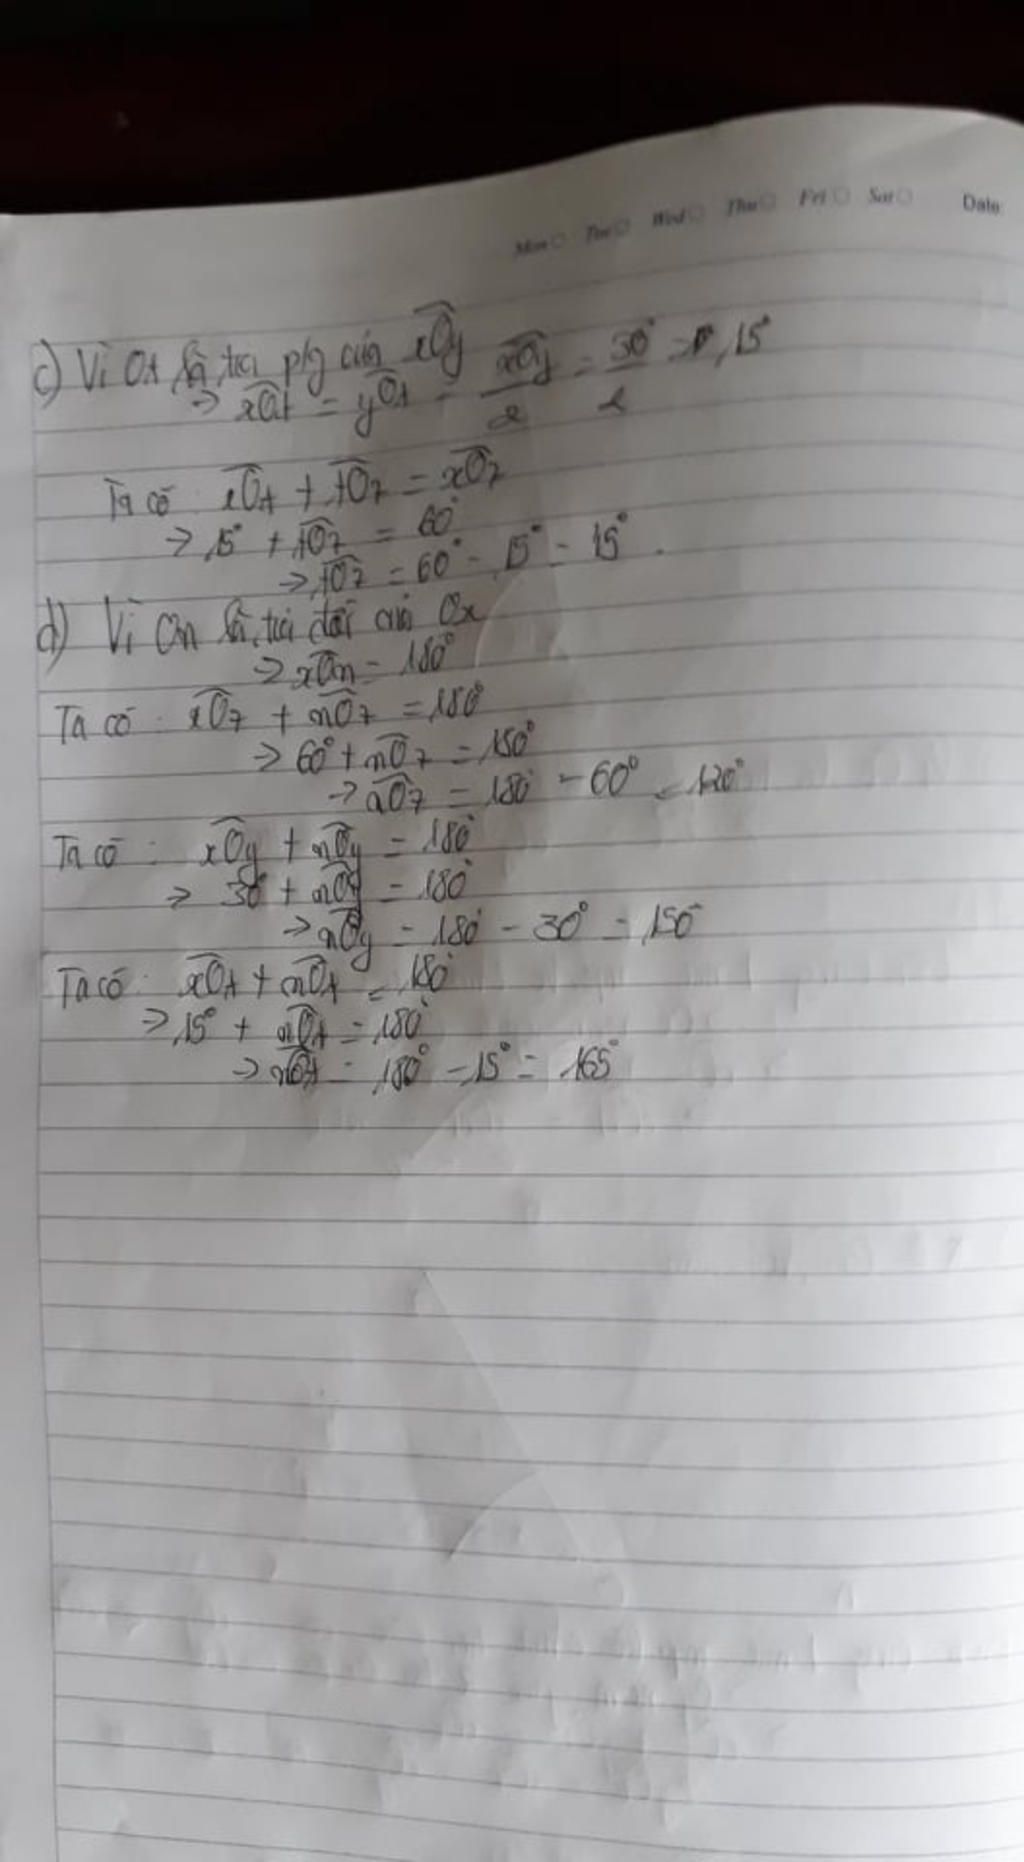 Mon Tue Wed Thu Fri Sat Date
c) Vì Ot là tia p/g của xOy
→ xOt = yOt = xOy/2 = 30°/2 = 15°
Ta có: xOt + tOz = xOz
→ 15° + tOz = 60°
→ tOz = 60° - 15° = 15°.
d) Vì On là tia đối của Ox
→ xOn = 180°
Ta có: xOz + nOz = 180°
→ 60° + nOz = 180°
→ nOz = 180° - 60° = 120°
Ta có: xOy + nOy = 180°
→ 30° + nOy = 180°
→ nOy = 180° - 30° = 150°
Ta có: xOt + nOt = 180°
→ 15° + nOt = 180°
→ nOt = 180° - 15° = 165°